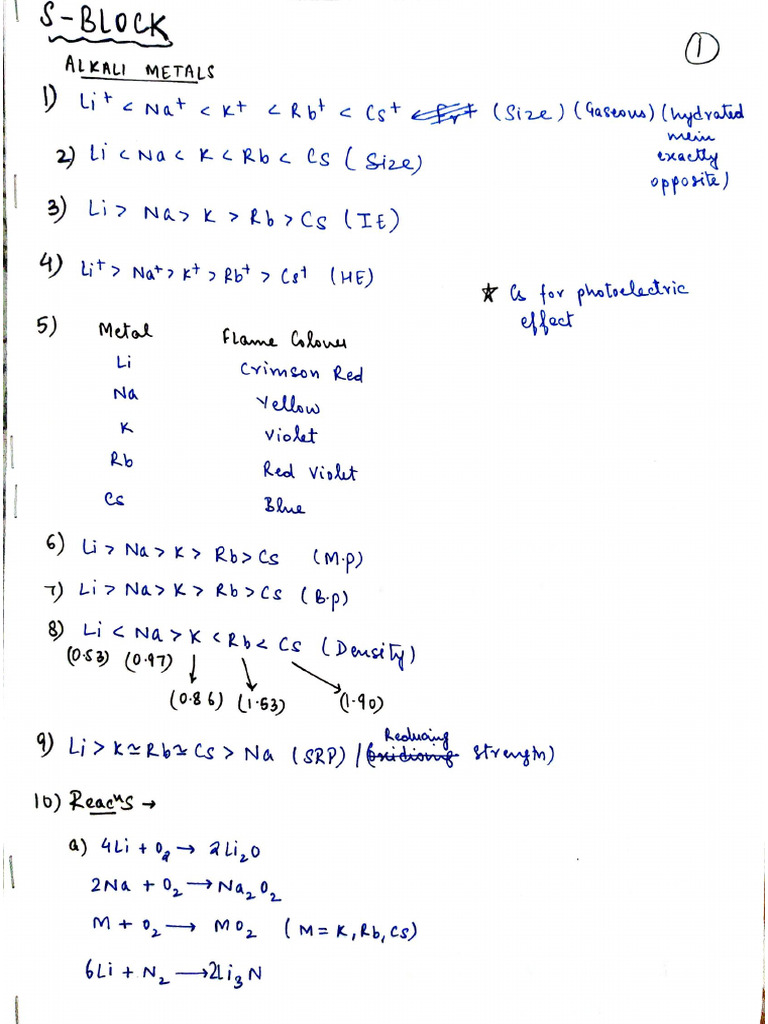 S-BLOCK
1
ALKALI METALS
1) Li⁺ < Na⁺ < K⁺ < Rb⁺ < Cs⁺ (Size) (Gaseous) (hydrated mein exactly opposite)
2) Li < Na < K < Rb < Cs (Size)
3) Li > Na > K > Rb > Cs (IE)
4) Li⁺ > Na⁺ > K⁺ > Rb⁺ > Cs⁺ (HE)
★ Cs for photoelectric effect
5) Metal Flame Colour
Li Crimson Red
Na Yellow
K Violet
Rb Red Violet
Cs Blue
6) Li > Na > K > Rb > Cs (M.p)
7) Li > Na > K > Rb > Cs (B.p)
8) Li < Na > K < Rb < Cs (Density)
(0.53) (0.97)
(0.86) (1.53) (1.90)
9) Li > K ≃ Rb ≃ Cs > Na (SRP) / (Reducing strength)
10) Reacⁿs →
a) 4Li + O₂ → 2Li₂O
2Na + O₂ → Na₂O₂
M + O₂ → MO₂ (M = K, Rb, Cs)
6Li + N₂ → 2Li₃N